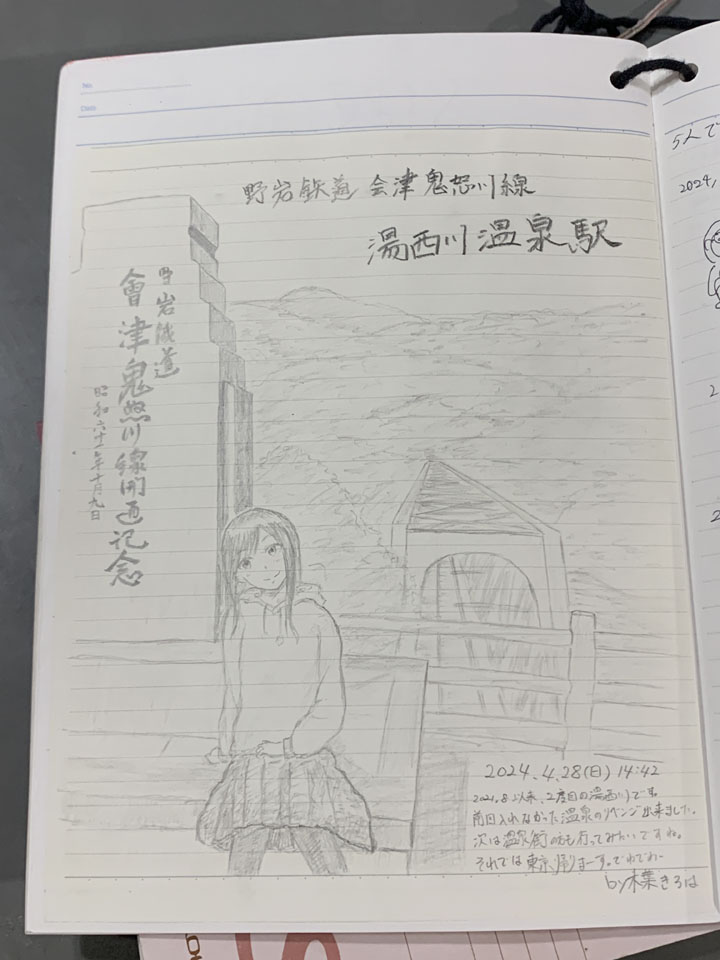 No.
Date
野岩鉄道 会津鬼怒川線
湯西川温泉駅
野岩鐵道
會津鬼怒川線開通記念
昭和六十一年十月九日
2024.4.28(日) 14:42
2021.8以来、2度目の湯西川です。
前回入れなかった温泉のリベンジ出来ました。
次は温泉街の方も行ってみたいですね。
それでは東京帰りまーす。でわでわー
by 木葉きろは
5人で
2024.
2
2